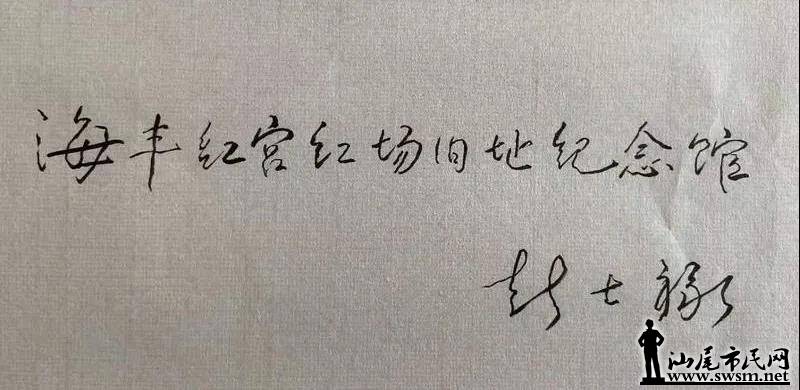 海丰红宫红场旧址纪念馆
彭士禄
汕尾市民网
www.swsm.net